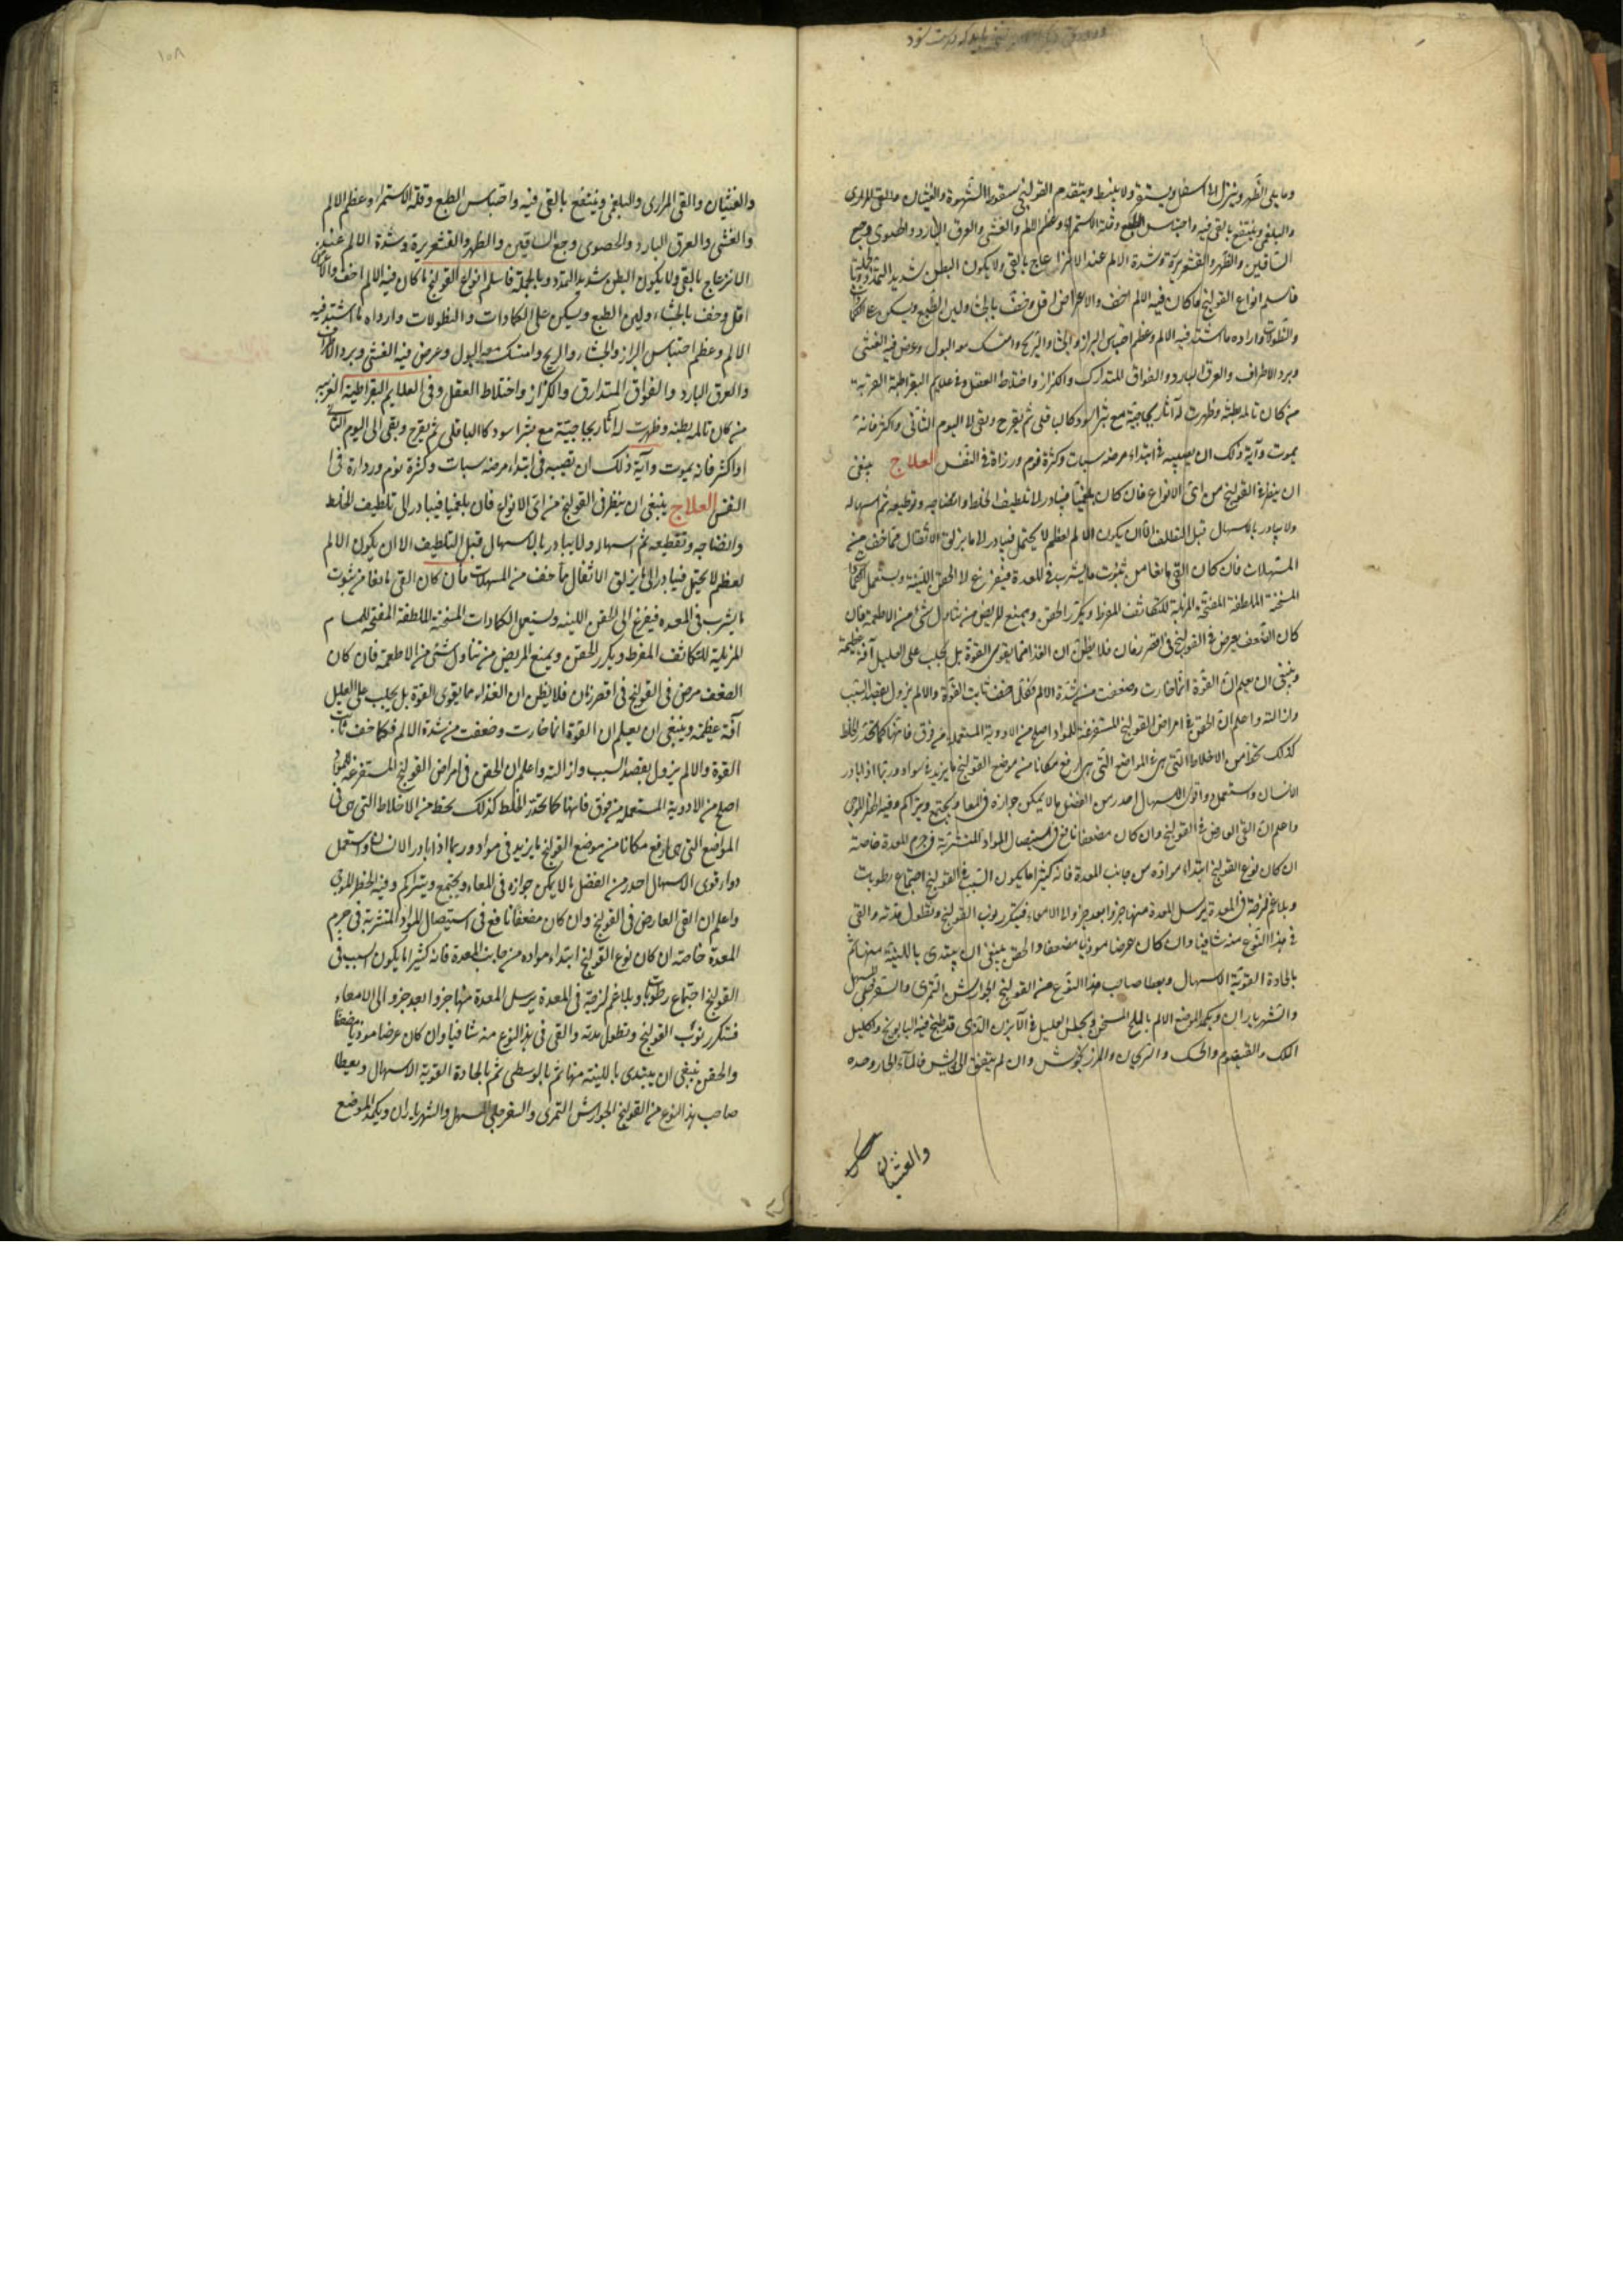 وما يلى الظهر وينزل الى اسفل ويستقر ولا ينبسط ويتقدم القولنج سقوط الشهوة والغثيان والقى المرارى
والبلغمى وينتفع بالقى فيه واحتباس الطبع وقلة الاستمراء وعظم الالم والغشى والعرق البارد والحصوى وجع
الساقين والظهر والقشعريرة وشدة الالم عند الانزعاج بالقى ولا يكون البطن شديد التمدد وبالجملة
فاسلم انواع القولنج ما كان فيه الالم اخف والاعراض اقل وخف بالجشاء ولين الطبع ويسكن على الكمادات
والنطولات وارداه ما اشتد فيه الالم وعظم احتباس البراز والجشاء والريح وامتسك معه البول وعرض فيه الغشى
وبرد الاطراف والعرق البارد والفواق المتدارك والكزاز واختلاط العقل وفى علايم البقراطية الغريبة
من كان تالمه بطنه وظهرت له آثار بحاجبيه مع بثر اسود كالباقلى ثم يقرح وبقى الى اليوم الثانى واكثر فانه
يموت وآية ذلك ان يصيبه فى ابتداء مرضه سبات وكثرة نوم ورزاة فى النفس العلاج ينبغى
ان ينظر فى القولنج من اى الانواع فان كان بلغميا فيبادر الى تلطيف الخلط وانضاجه وتقطيعه ثم اسهاله
ولا يبادر بالاسهال قبل التلطف الا ان يكون الالم لعظمه لا يحتمل فيبادر الى ما يزلق الاثفال مما خف من
المسهلات فان كان القى مانعا من ثبوت ما يشرب فى المعدة فيفزغ الى الحقن اللينة ويستعمل الكمادات
المسخنة الملطفة المفتحة المزيلة للتكاثف المفرط ويكرر الحقن ويمنع المريض من تناول شئ من الاطعمة فان
كان الضعف يعرض فى القولنج فى اقصر زمان فلا يظن ان الغذا مما يقوى القوة بل يجلب على العليل آفة عظيمة
وينبغى ان يعلم ان القوة انما خارت وضعفت من شدة الالم فكلما خف ثابت القوة والالم يزول بقصد السبب
وازالته واعلم ان الحقن فى امراض القولنج المستفرغة للمواد اصلح من الادوية المستعملة من فوق فانها كما تحدر الخلط
كذلك تحط من الاخلاط التى هى فى المواضع التى هى ارفع مكانا من موضع القولنج ما يزيد فى مواده وربما اذا بادر
الانسان واستعمل دواء قوى الاسهال احدر من الفضل ما لا يمكن جوازه فى المعا ويجتمع ويتراكم وفيه الخطر الموحى
واعلم ان القى العارض فى القولنج وان كان مضعفا نافع فى استيصال المواد المتشربة فى جرم المعدة خاصة
ان كان نوع القولنج ابتداء مواده من جانب المعدة فانه كثيرا ما يكون السبب فى القولنج اجتماع رطوبات
وبلاغم لزجة فى المعدة يرسل المعدة منها جزوا بعد جزو الى الامعاء فيتكرر نوب القولنج وتطول مدته والقى
فى هذا النوع منه شافيا وان كان عرضا موذيا مضعفا والحقن ينبغى ان يبتدى باللينة منها ثم
بالحادة القوية الاسهال ويعطا صاحب هذا النوع من القولنج الجوارش التمرى والسفرجلى المسهل
والشهرياران ويكمد الموضع الالم بالملح المسخن ويجلس العليل فى الآبزن الذى قد طبخ فيه البابونج واكليل
الملك والقيصوم والحسك والريحان والمرزنجوش وان لم يتفق الحشايش فالماء الحار وحده
والغثيان
١٥٨
والغثيان والقى المرارى والبلغمى وينتفع بالقى فيه واحتباس الطبع وقلة الاستمراء وعظم الالم
والغشى والعرق البارد والحصوى وجع الساقين والظهر والقشعريرة وشدة الالم عند
الانزعاج بالقى ولا يكون البطن شديد التمدد وبالجملة فاسلم انواع القولنج ما كان فيه الالم اخف والاعراض
اقل وخف بالجشاء ولين الطبع ويسكن على الكمادات والنطولات وارداه ما اشتد فيه
الالم وعظم احتباس البراز والجشاء والريح وامتسك معه البول وعرض فيه الغشى وبرد الاطراف
والعرق البارد والفواق المتدارق والكزاز واختلاط العقل وفى العلايم البقراطية الغريبه
من كان تالمه بطنه وظهرت له اثار بحاجبيه مع بثر اسود كالباقلى ثم يقرح وبقى الى اليوم الثانى
او اكثر فانه يموت وآية ذلك ان تصيبه فى ابتداء مرضه سبات وكثرة نوم ورداره فى
النفس العلاج ينبغى ان ينظر فى القولنج من اى الانواع فان بلغميا فيبادر الى تلطيف الخلط
وانضاجه وتقطيعه ثم اسهاله ولا يبادر بالاسهال قبل التلطيف الا ان يكون الالم
لعظمه لا يحتمل فيبادر الى ما يزلق الاثفال مما خف من المسهلات فان كان القى مانعا من ثبوت
ما يشرب فى المعده فيفزغ الى الحقن اللينه ويستعمل الكمادات المسخنة الملطفة المفتحة للمسام
المزيلة للتكاثف المفرط ويكرر الحقن ويمنع المريض من تناول شئ من الاطعمة فان كان
الضعف مرض فى القولنج فى اقصر زمان فلا يظن ان الغذاء مما يقوى القوة بل يجلب على العليل
آفة عظيمة وينبغى ان يعلم ان القوة انما خارت وضعفت من شدة الالم فكلما خف ثابت
القوة والالم يزول بقصد السبب وازالته واعلم ان الحقن فى امراض القولنج المستفرغة للمواد
اصلح من الادوية المستعملة من فوق فانها كما تحدر الخلط كذلك يحط من الاخلاط التى هى فى
المواضع التى هى ارفع مكانا من موضع القولنج ما يزيد فى مواده وربما اذا بادر الانسان واستعمل
دواء قوى الاسهال احدر من الفضل ما لا يمكن جوازه فى المعاء ويجتمع ويتراكم وفيه الخطر الموحى
واعلم ان القى العارض فى القولنج وان كان مضعفا نافع فى استيصال المواد المتشربة فى جرم
المعدة خاصة ان كان نوع القولنج ابتداء مواده من جانب المعدة فانه كثيرا ما يكون السبب فى
القولنج اجتماع رطوبات وبلاغم لزجة فى المعدة يرسل المعدة منها جزوا بعد جزو الى الامعاء
فتتكرر نوب القولنج وتطول مدته والقى فى هذا النوع منه شافيا وان كان عرضا موذيا مضعفا
والحقن ينبغى ان يبتدى باللينة منها ثم بالوسطى ثم بالحادة القوية الاسهال ويعطا
صاحب هذا النوع من القولنج الجوارش التمرى والسفرجلى المسهل والشهرياران ويكمد الموضع